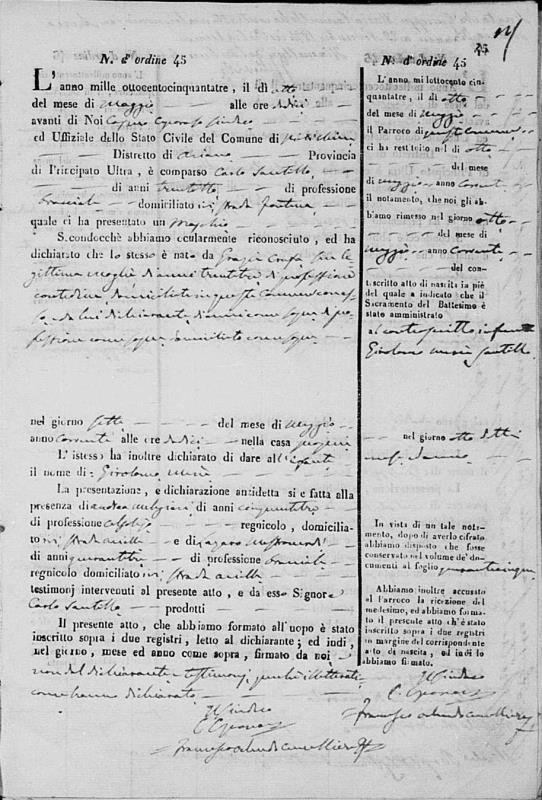 N. d'ordine 45
L'anno mille ottocentocinquantatre, il dì otto
del mese di Maggio alle ore dodici
avanti di Noi Sindaco
ed Uffiziale dello Stato Civile del Comune di
Distretto di Ariano Provincia
di Principato Ultra, è comparso Carlo Santillo
di anni trentotto di professione
bracciale domiciliato ivi strada Fontana
quale ci ha presentato un Maschio
Secondocchè abbiamo ocularmente riconosciuto, ed ha
dichiarato che lo stesso è nato da Grazia sua le
gittima moglie di anni trentatre di professione
contadina domiciliata in questo Comune come so
pra e da lui dichiarante di anni come sopra di pro
fessione come sopra domiciliato come sopra
nel giorno sette del mese di Maggio
anno corrente alle ore dodici nella casa propria
L'istesso ha inoltre dichiarato di dare all'infante
il nome di: Girolomo Maria
La presentazione, e dichiarazione anzidetta si e fatta alla
presenza di Andrea di anni cinquantatre
di professione calzolajo regnicolo, domicilia-
to ivi strada e di Lazaro
di anni quarantatre di professione bracciale
regnicolo domiciliato ivi strada
testimonj intervenuti al presente atto, e da esso Signore
Carlo Santillo prodotti
Il presente atto, che abbiamo formato all'uopo è stato
inscritto sopra i due registri, letto al dichiarante; ed indi,
nel giorno, mese ed anno come sopra, firmato da noi
non dal dichiarante e testimonj perche illetterati
come hanno dichiarato
Il Sindaco
45
N. d'ordine 45
L'anno mi lottocento cin-
quantatre, il di otto
del mese di Maggio
il Parroco di questo Comune
ci ha restituito nel dì otto
del mese
di Maggio anno corrente
il notamento, che noi gli ab-
biamo rimesso nel giorno otto
del mese di
Maggio anno corrente
del con-
t scritto atto di nascita in piè
del quale a indicato che il
Sacramento del Battesimo è
stato amministrato
al controscritto infante
Girolomo Maria Santillo
nel giorno otto detto
mese ed anno
In vista di un tale nota-
mento, dopo di averlo cifrato
abbiamo disposto che fosse
conservato nel volume de' do-
cumenti al foglio quarantacinque
Abbiamo inoltre accusato
al Parroco la ricezione del
medesimo, ed abbiamo forma-
to il presente atto ch'è stato
inscritto sopra i due registri
in margine del corrispondente
atto di nascita, ed indi lo
abbiamo firmato.
Il Sindaco